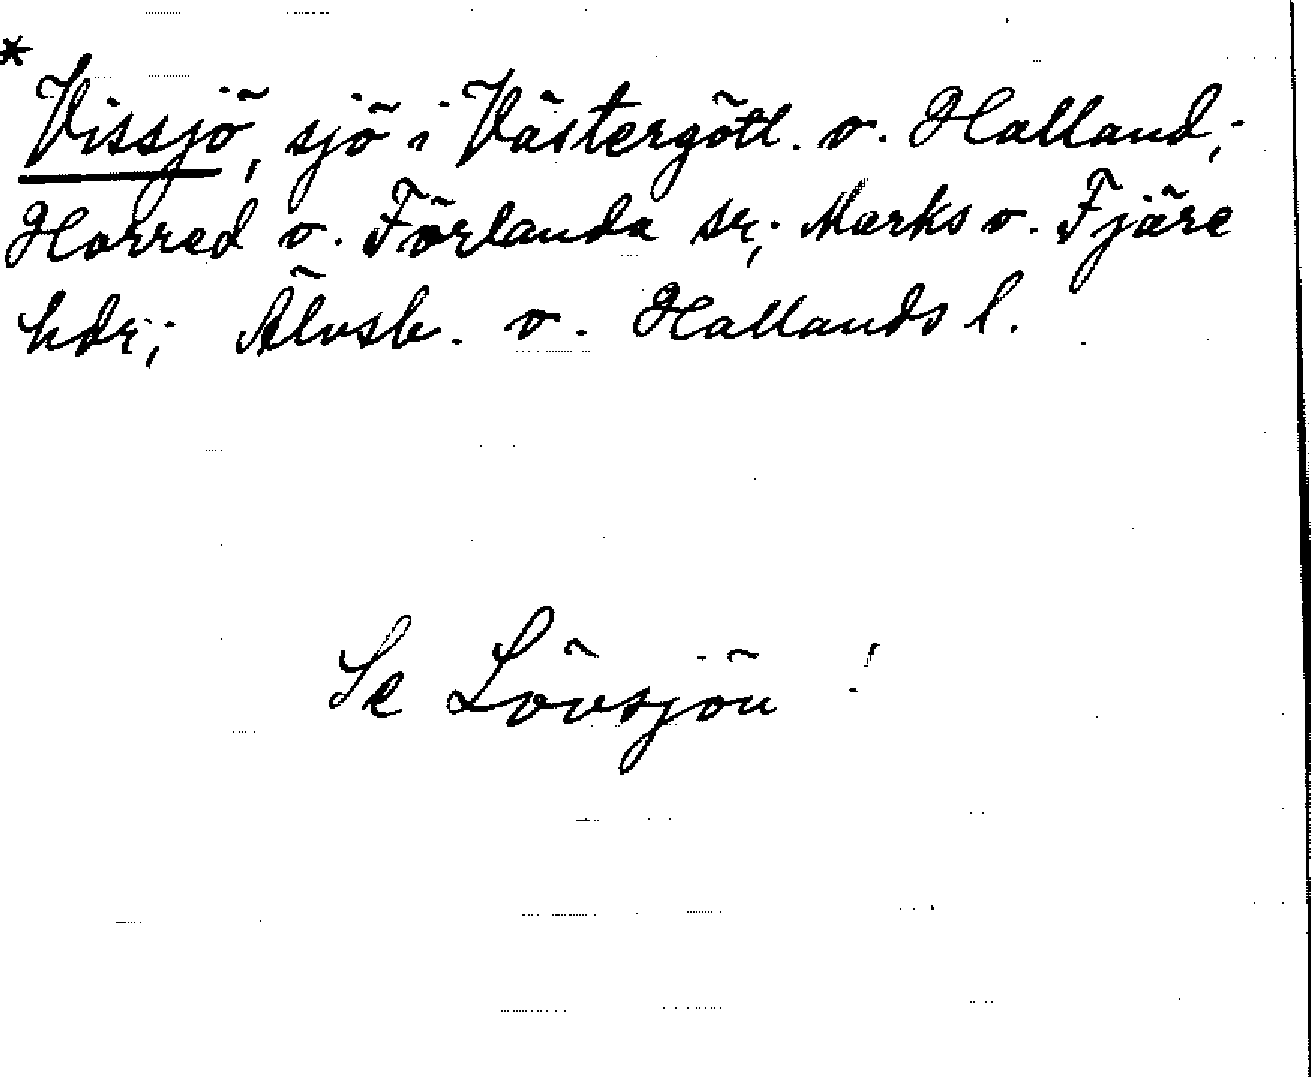 * Vissjö, sjö i Västergötl. o. Halland;
Horred o. Förlanda sr; Marks o. Fjäre
hdr; Älvsb. o. Hallands l.
Se Lövsjön!